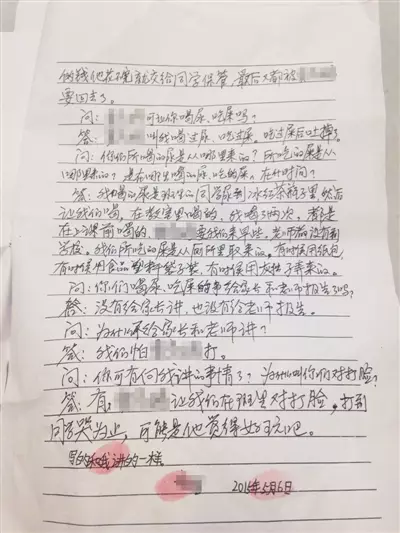 的钱他花不完就交给同学保管 最后又都被
要回去了。
问: 可让你喝尿、吃屎吗?
答: 叫我喝过尿、吃过屎。吃过屎后吐掉了
问:你们所喝的尿是从哪里来的?所吃的屎是从
哪里来的? 在什时间?
答:我喝的尿是班上的同学尿到冰红茶瓶子里,然后
让我们喝,在教室里喝的,我喝了两次。都是
在上课前喝的。 要我们来早些,老师都没有到
学校。我们所吃的屎是从厕所里取来的。有时候用纸包,
有时候用食品塑料袋子装,有时候用 弄来的。
问:你们喝尿、吃屎的事给家长和老师报告了吗?
答:没有给家长讲,也没有给老师报告。
问:为什么不给家长和老师讲?
答:我们怕 打。
问:你可有何我讲的事情了?为他叫你们对打脸?
答:有, 让我们在班里对打脸,打到
同学哭为止,可能是他觉得好玩吧。
写的和我讲的一样。
2015年5月6日